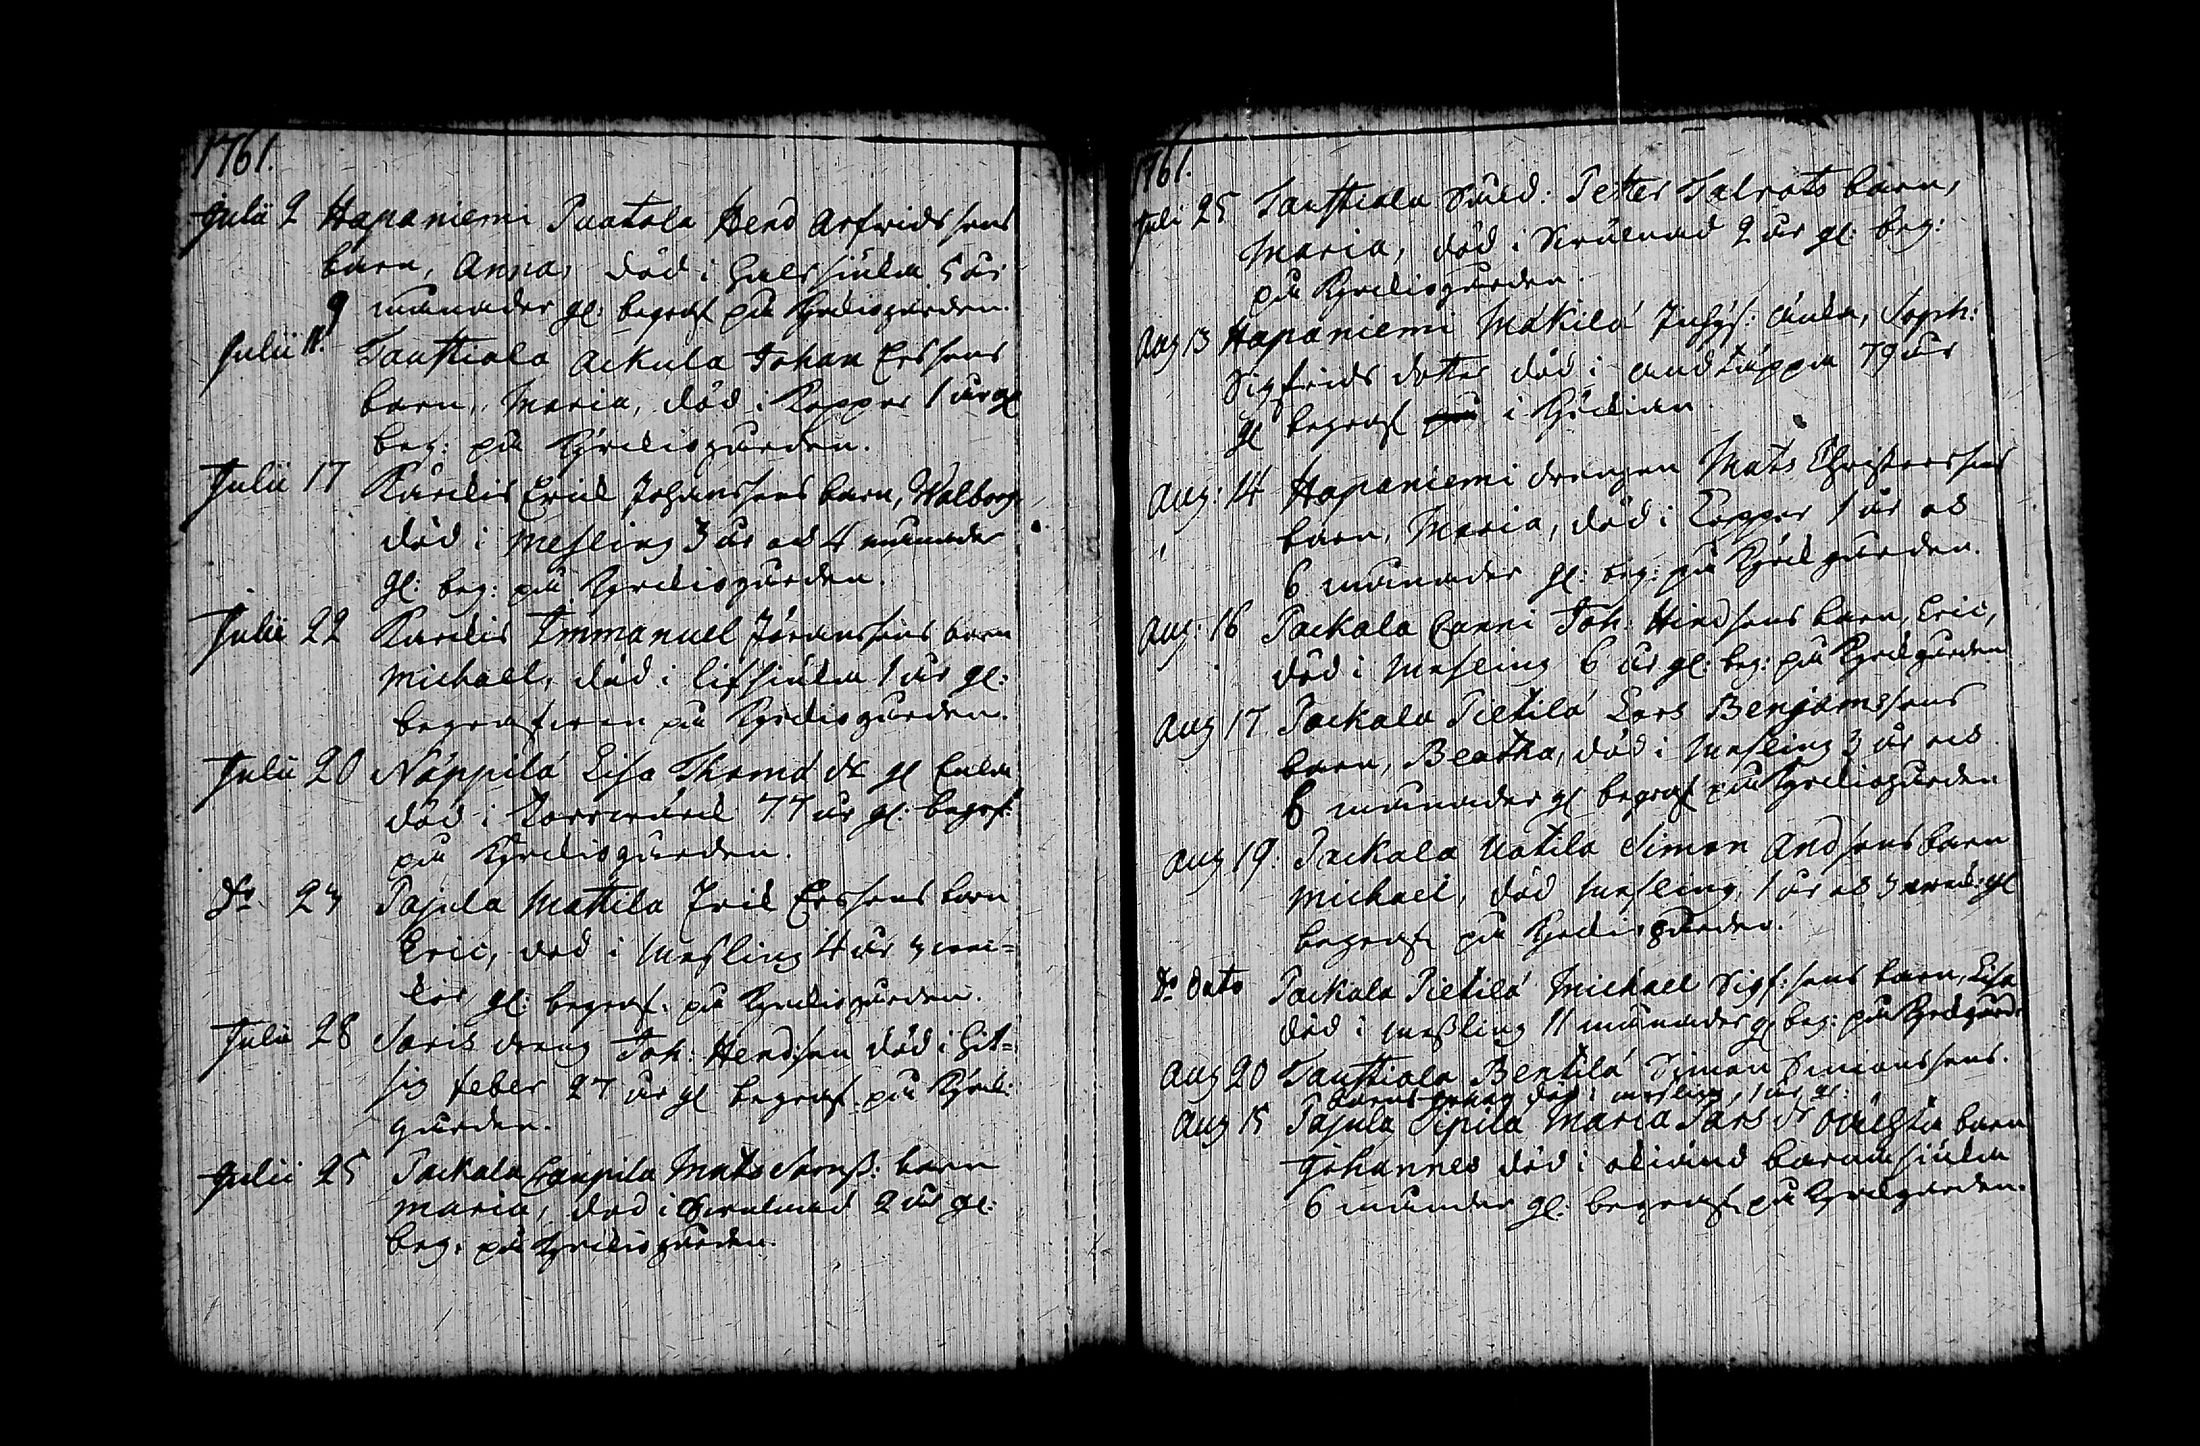 1761.
Julii 2 Hapaniemi Paatola Hend Arfvidssons
barn, Anna, död i halssjuka 5 år
9 månader gl: begrof på Kyrkiogården.
Julii 11. Tausttiala Ackula Johan Erssons
barn, Maria, död i Koppor 1 år gl
beg: på Kyrkiogården.
Julii 17 Karkis Erick Johanssons barn, Walborg,
död i Mesling 3 år och 4 månader
gl: beg: på Kyrkiogården.
Julii 22 Karkis Immanuel Göranssons barn
Michael, död i 1 år gl:
begrafven på Kyrkiogården.
Julii 20 Näppilä Lisa Thoma dr gl Enka
död i 77 år gl: begrf:
på Kyrkiogården.
Do 23 Pajula Mattila Erik Erssons barn
Eric, död i Messling 4 år 3
gl: begrof: på Kyrkiogården.
Julii 28 Saris dreng Joh: Hendsson död i hit=
sig feber 27 år gl begrof på Kyrk:
gården.
Julii 25 Packala Caupila Mats barn
Maria, död i 2 år gl:
beg: på Kyrkiogården.
1761.
Juli 25 Tausttiala Petter Talrots barn,
Maria, död i 2 år gl: beg:
på Kyrkiogården.
Aug 13 Hapaniemi Mäkilä Inhys: änka, Soph:
Sigfrids dotter död i andtäppa 79 år
gl begrof i Kyrkian
Aug: 14 Hapaniemi drengen Mats Christerssons
barn, Maria, död i Koppor 1 år och
6 månader gl: beg: på Kyrkgården.
Aug: 16 Packala Canni Joh: Hindssons barn, Eric,
död i Mesling 6 år gl: beg: på Kyrkgården
Aug 17. Packala Pietilä Lars Benjamssons
barn, Beatha, död i Mesling 3 år och
6 månader gl begrof på Kyrkiogården
Aug 19. Packala Uotila Simon Andssons barn
Michael, död Mesling, 1 år och 3 gl
begrof på Kyrkiogården.
Do dato Packala Pietilä Michael Sigf:sons barn, Lisa
död i messling 11 månader gl beg: på Kyrkgård:
Aug 20 Tausttiala Bentilä Simon Simonssons
barn död i mesling, 1 år gl:
Aug 15 Pajula Sipilä Maria Lars dr oächta barn
Johannes död i okiänd barnasjuka
6 månader gl: begrof på Kyrkgården.